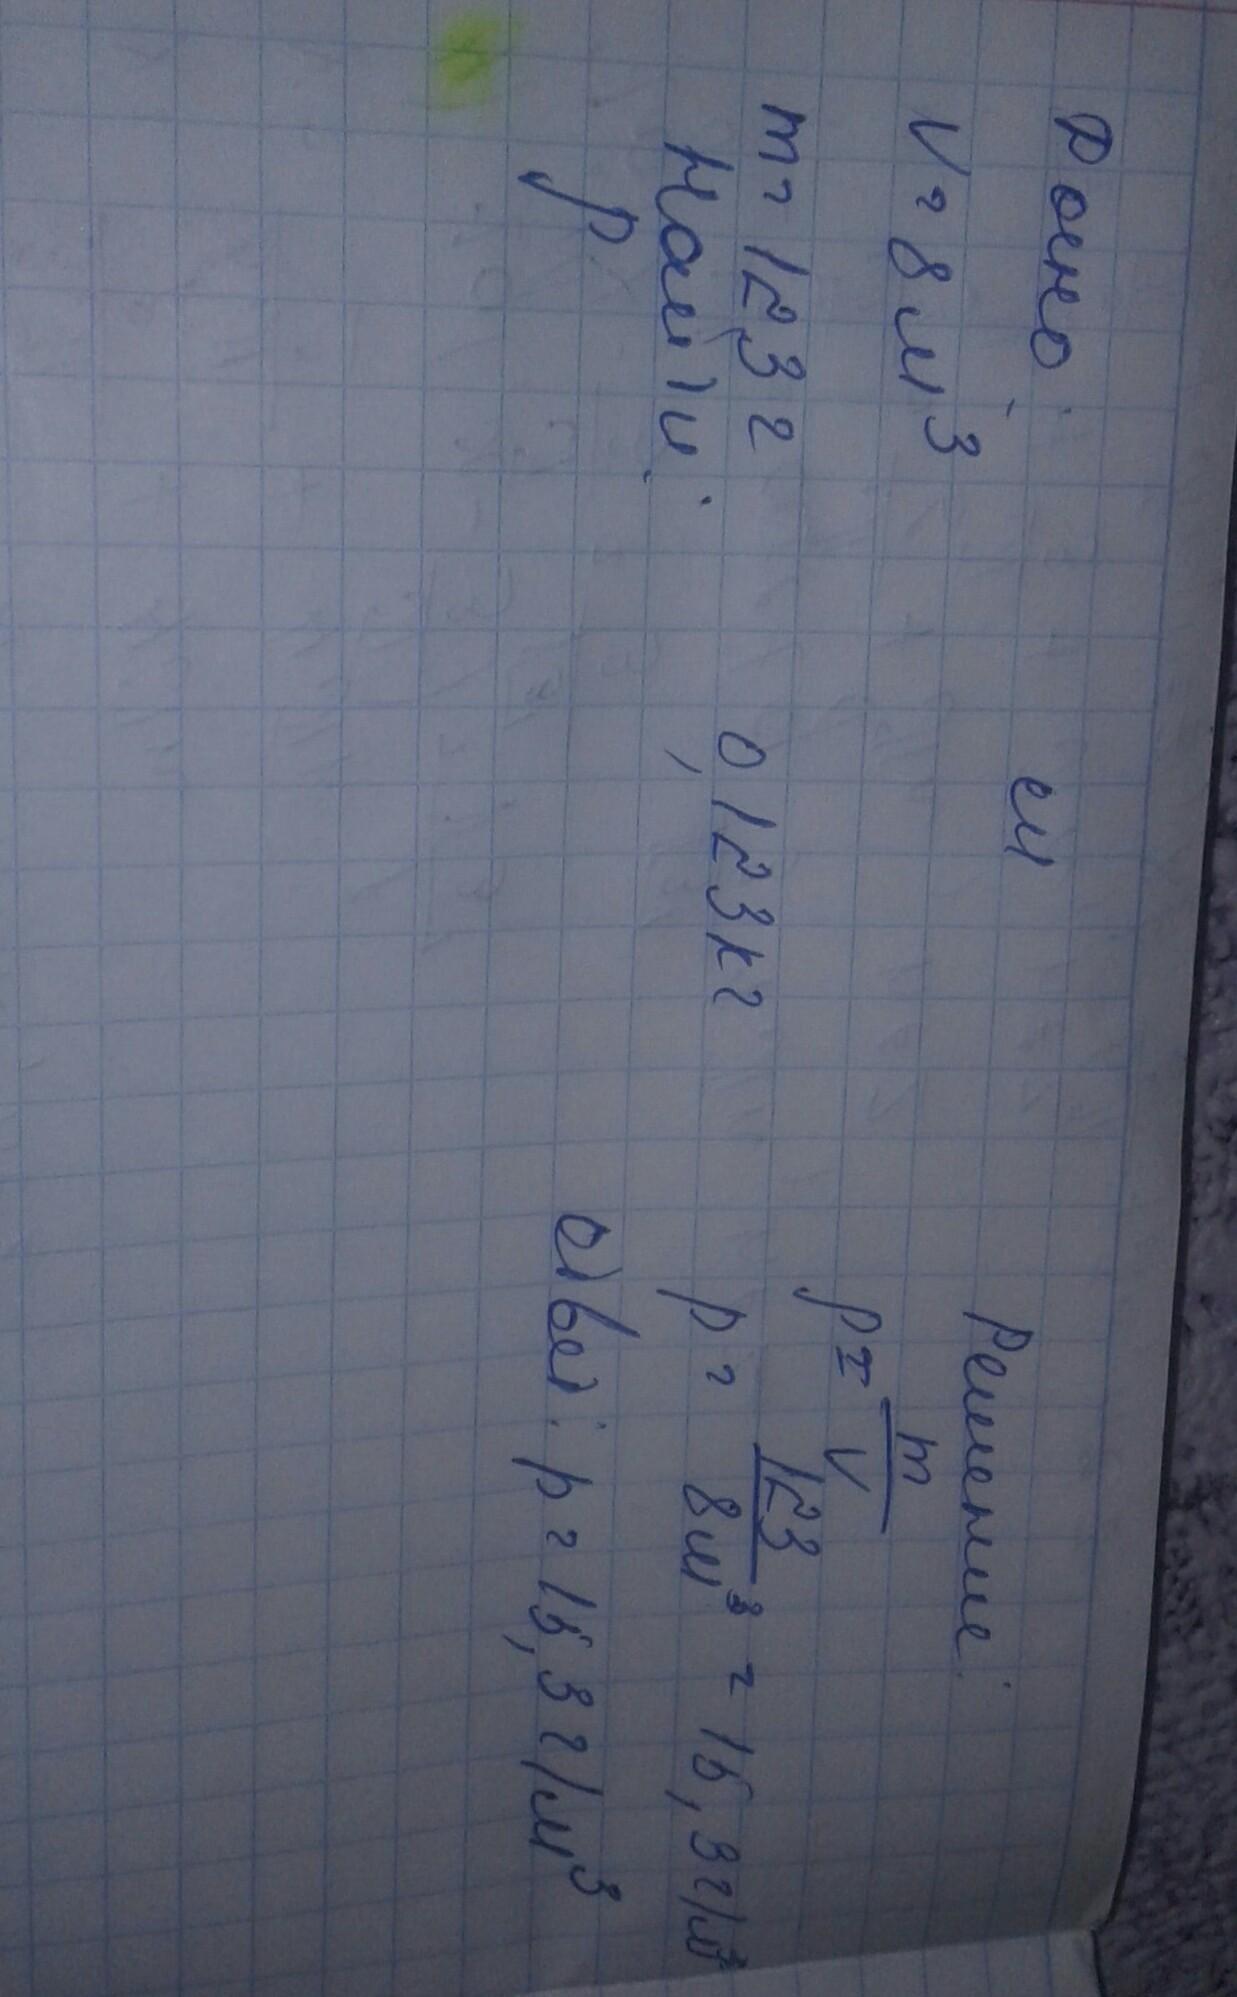 Дано:
V = 8 м³
m = 123 г
Найти:
p
СИ
0,123 кг
Решение:
p = m/V
p = 123/8 м³ = 15,3 г/м³
Ответ: p = 15,3 г/м³